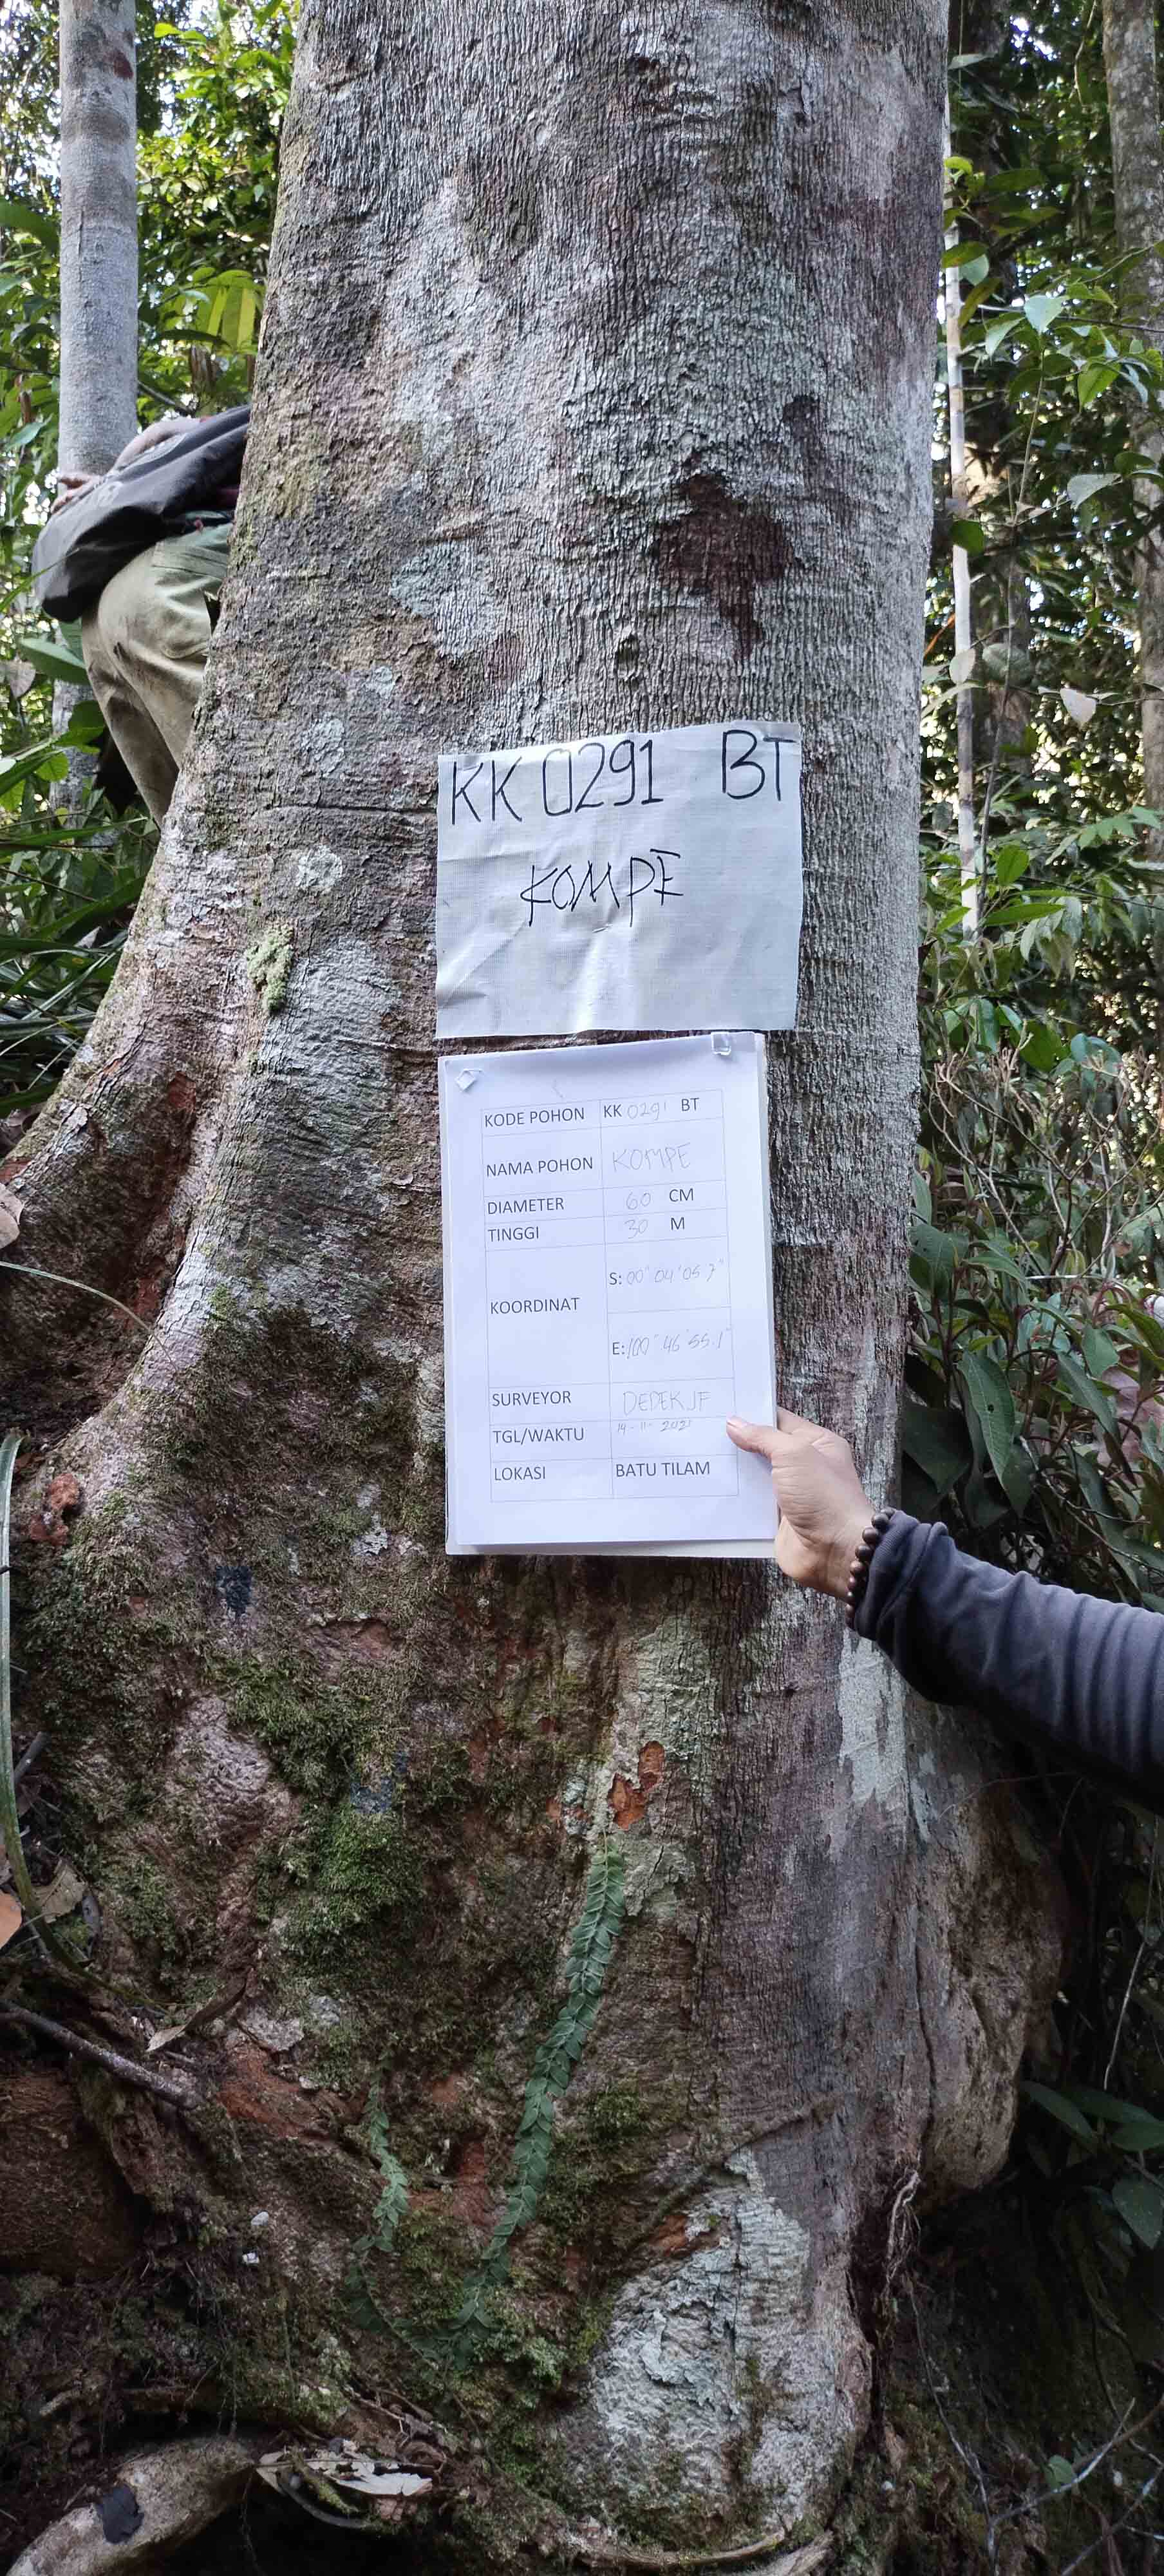 KK 0291 BT
KOMPE
KODE POHON KK 0291 BT
NAMA POHON KOMPE
DIAMETER 60 CM
TINGGI 30 M
KOORDINAT
S: 00° 04' 05.7"
E: 100° 46' 55.1"
SURVEYOR DEDEK JF
TGL/WAKTU 14-11-2021
LOKASI BATU TILAM